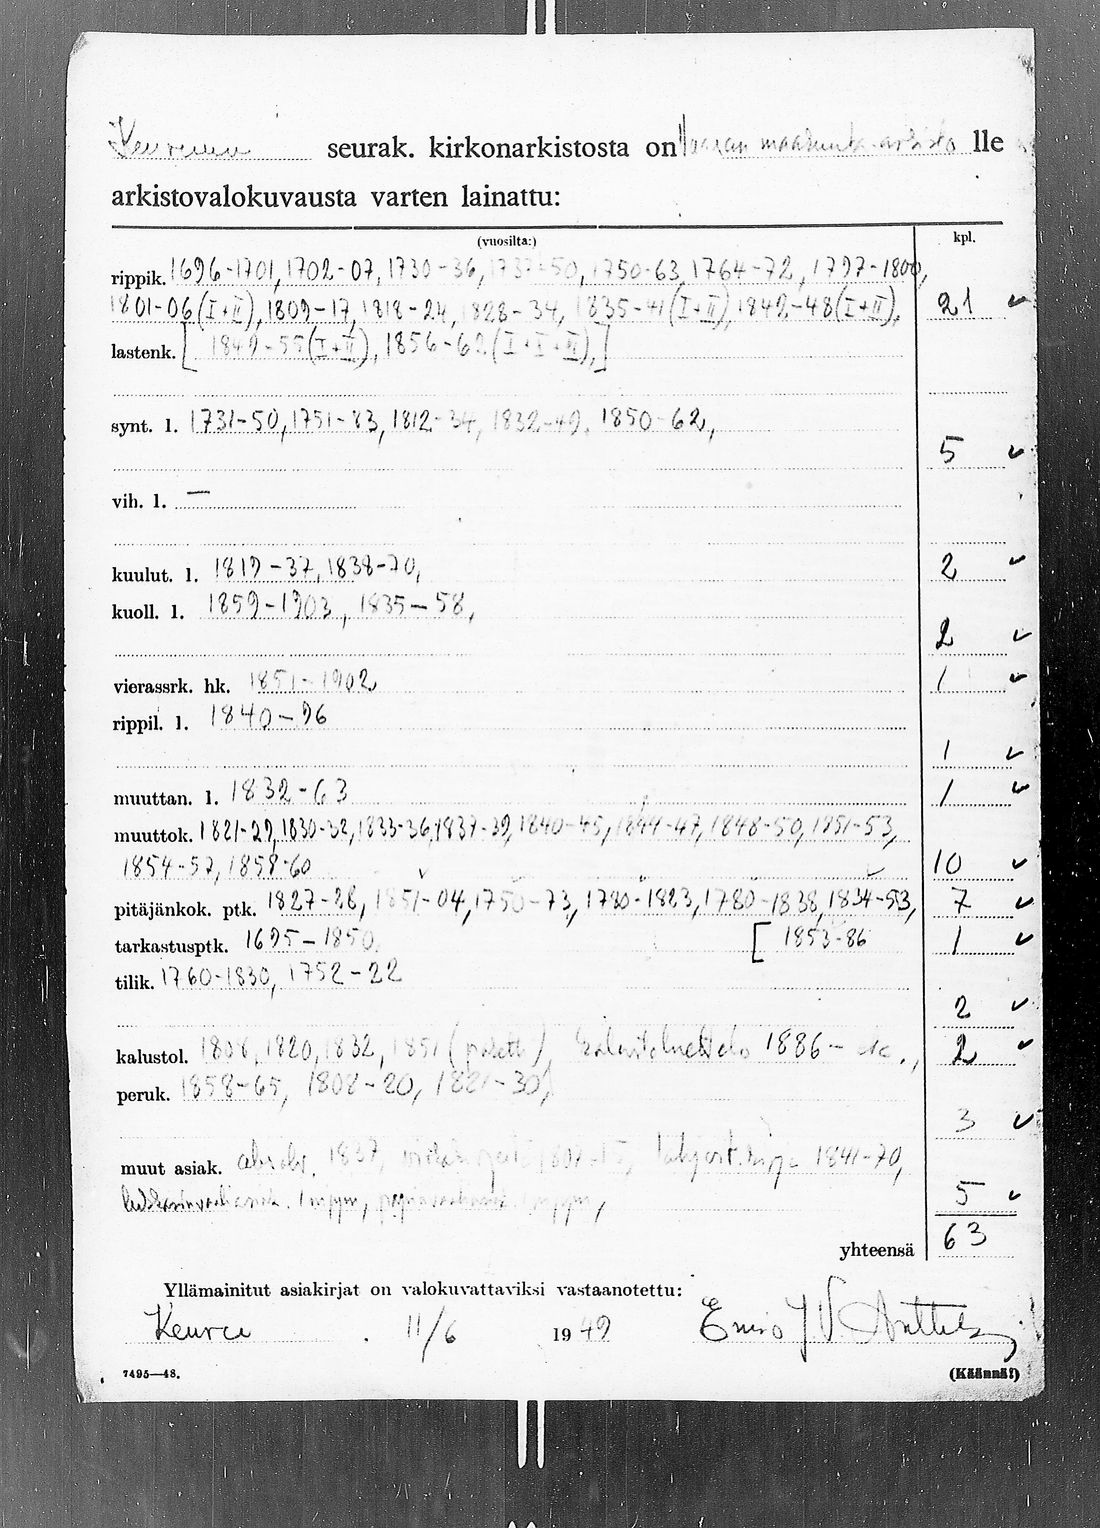 Keuruun seurak. kirkonarkistosta on Vaasan maakunta-arkisto lle
arkistovalokuvausta varten lainattu:
(vuosilta:) kpl.
rippik. 1696-1701, 1702-07, 1730-36, 1737-50, 1750-63, 1764-72, 1797-1800,
1801-06 (I+II), 1809-17, 1818-24, 1828-34, 1835-41 (I+II), 1842-48 (I+II), 21 ✓
lastenk. [1849-55 (I+II), 1856-62 (I+II+III),]
synt. l. 1731-50, 1751-83, 1812-34, 1832-49, 1850-62,
5 ✓
vih. l. —
kuulut. l. 1819-37, 1838-70, 2 ✓
kuoll. l. 1859-1903, 1835-58,
2 ✓
vierassrk. hk. 1851-1902 1 ✓
rippil. l. 1840-96
1 ✓
muuttan. l. 1832-63 1 ✓
muuttok. 1821-29, 1830-32, 1833-36, 1837-39, 1840-45, 1844-47, 1848-50, 1851-53,
1854-57, 1858-60 10 ✓
pitäjänkok. ptk. 1827-28, 1851-04, 1750-73, 1780-1823, 1780-1838, 1834-53, 7 ✓
tarkastusptk. 1695-1850, [1853-86 1 ✓
tilik. 1760-1830, 1752-22
2 ✓
kalustol. 1808, 1820, 1832, 1851 kalustoluettelo 1886- 2 ✓
peruk. 1858-65, 1808-20, 1821-30,
3 ✓
muut asiak. 1837, lahjoit.kirja 1841-70,
5 ✓
yhteensä 63
Yllämainitut asiakirjat on valokuvattaviksi vastaanotettu:
Keuruu . 11/6 1949 Eino J V Anttila
7495—48. (Käännä!)